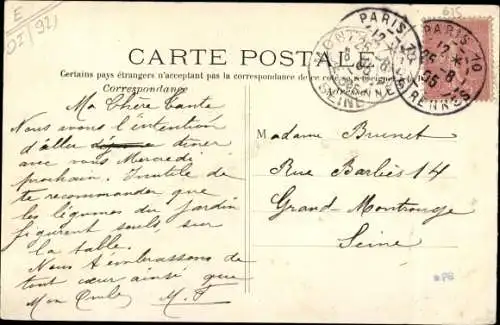 E
02 (92)
635
CARTE POSTALE
Certains pays étrangers n'acceptent pas la correspondance de ce côté se
Correspondance
PARIS 10
12 *
25 8
05
R. RENNES
PARIS 10
12 *
25 8
05
R. RENNES
MONT
25 8
05
SEINE
Ma Chère Tante
Nous avons l'intention
d'aller dîner
avec vous Mercredi
prochain. Inutile de
te recommander que
les légumes du jardin
figurent seuls sur
la table.
Nous t'embrassons de
tout cœur ainsi que
Mon Oncle M. F
Madame Brunet
Rue Barbès 14
Grand-Montrouge
Seine